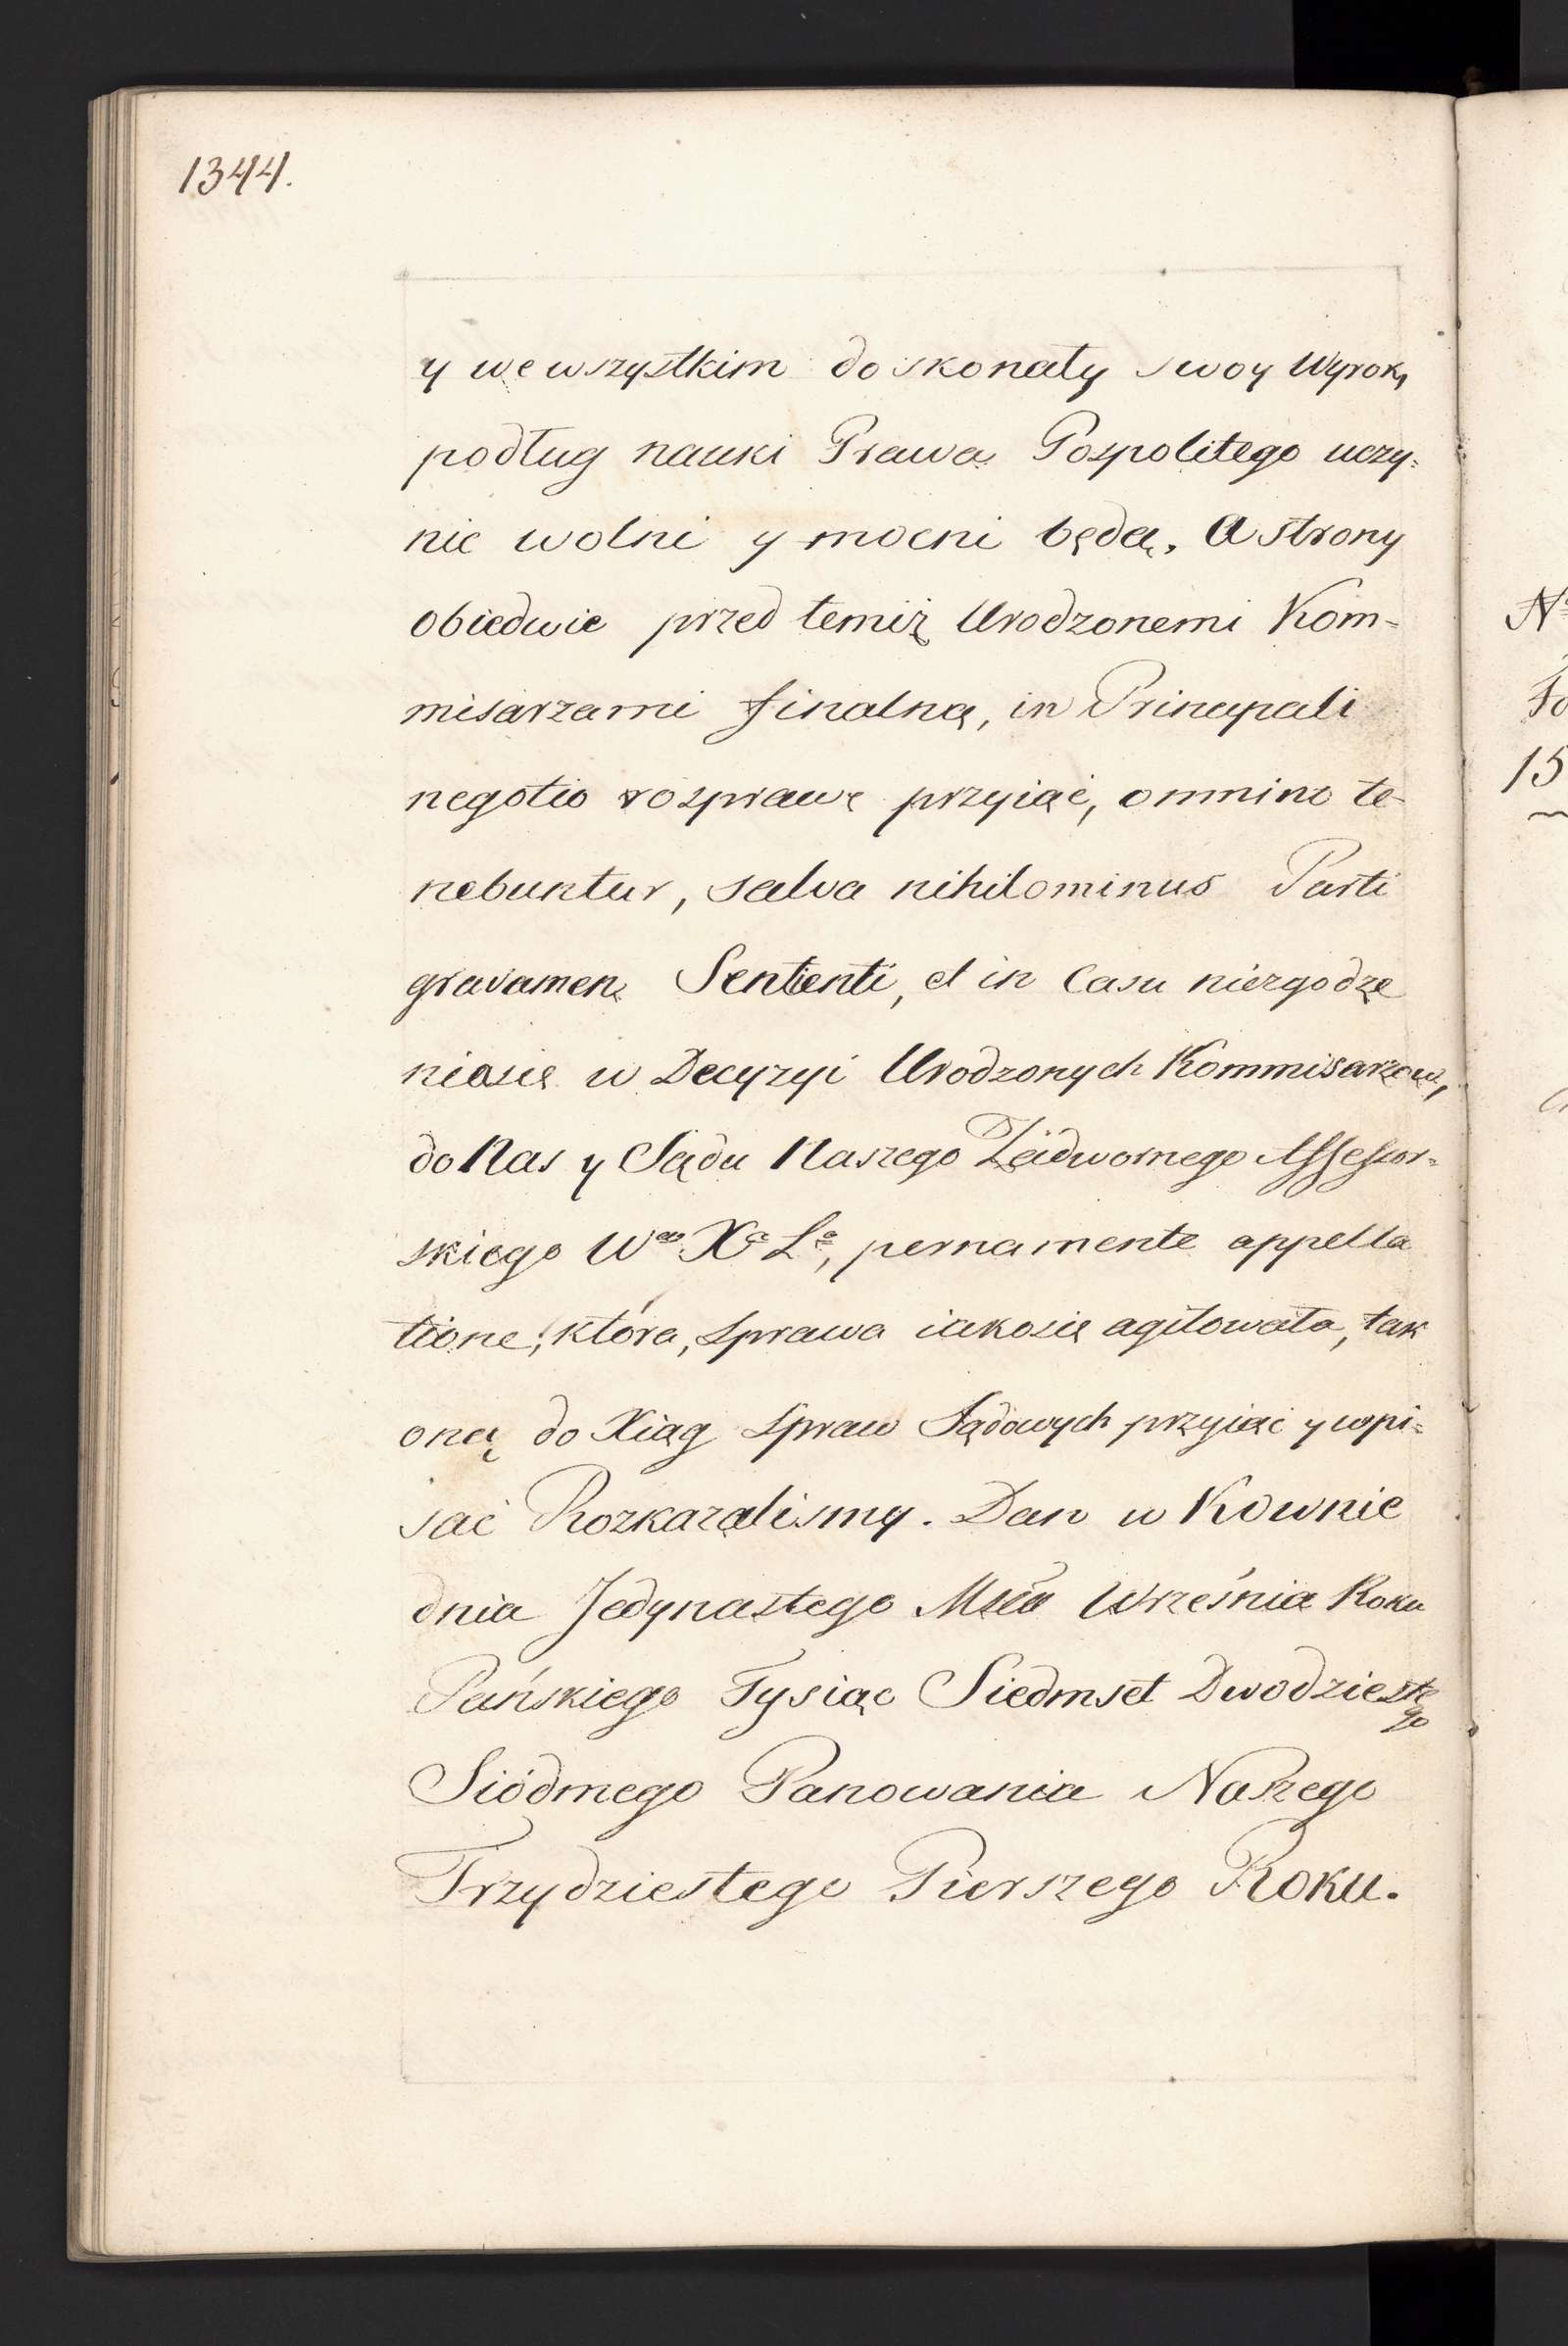 1344.
y we wszystkim doskonały swoy Wyrok,
podług nauki Prawa Pospolitego uczy=
nic wolni y mocni będą. A strony
obiedwie przed temiż Urodzonemi Kom-
misarzami finalną, in Principali
negotio rozprawę przyiąć, omnino te-
nebuntur, salva nihilominus Parti
gravamen Sentienti, et in Casu niezgodze
niasię w Decyzyi Urodzonych Kommisarzow,
do Nas y Sądu Naszego Zadwornego Assessor=
skiego Wgo Xa Lo, pernamente appella
tione, która, sprawa iakosię agitowała, tak
oną do Xiąg Spraw Sądowych przyiąć y wpi=
sać Rozkazalismy. Dan w Kownie
dnia Jedynastego Msca Września Roku
Pańskiego Tysiąc Siedmset Dwodzieste
go
Siódmego Panowania Naszego
Trzydziestego Pierszego Roku.
15